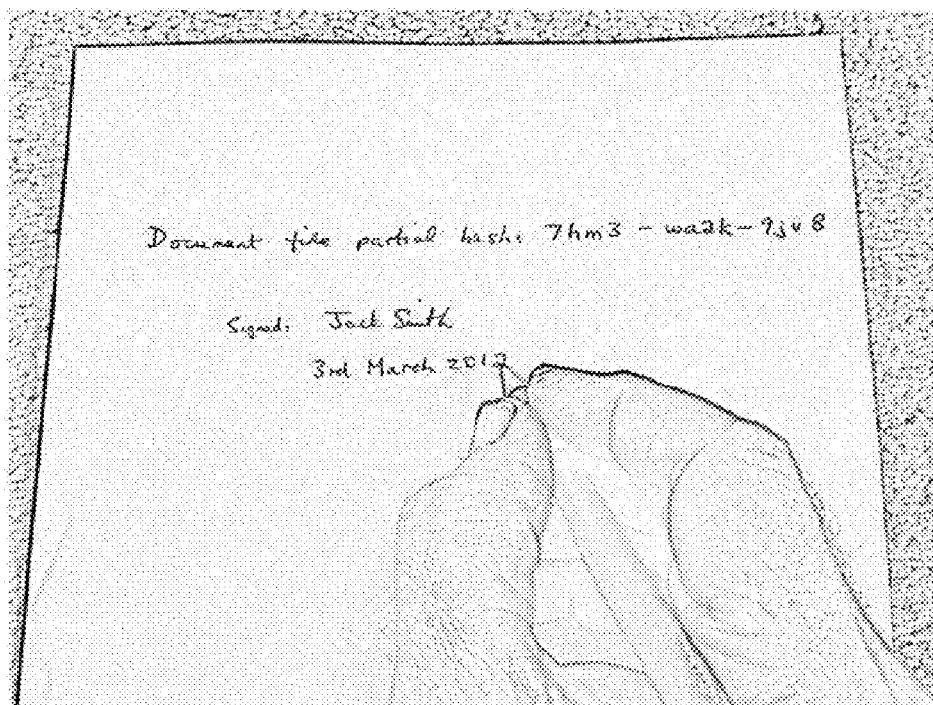 Document file partial hash: 7hm3 - wa2k - 9jv8
Signed: Jack Smith
3rd March 2012